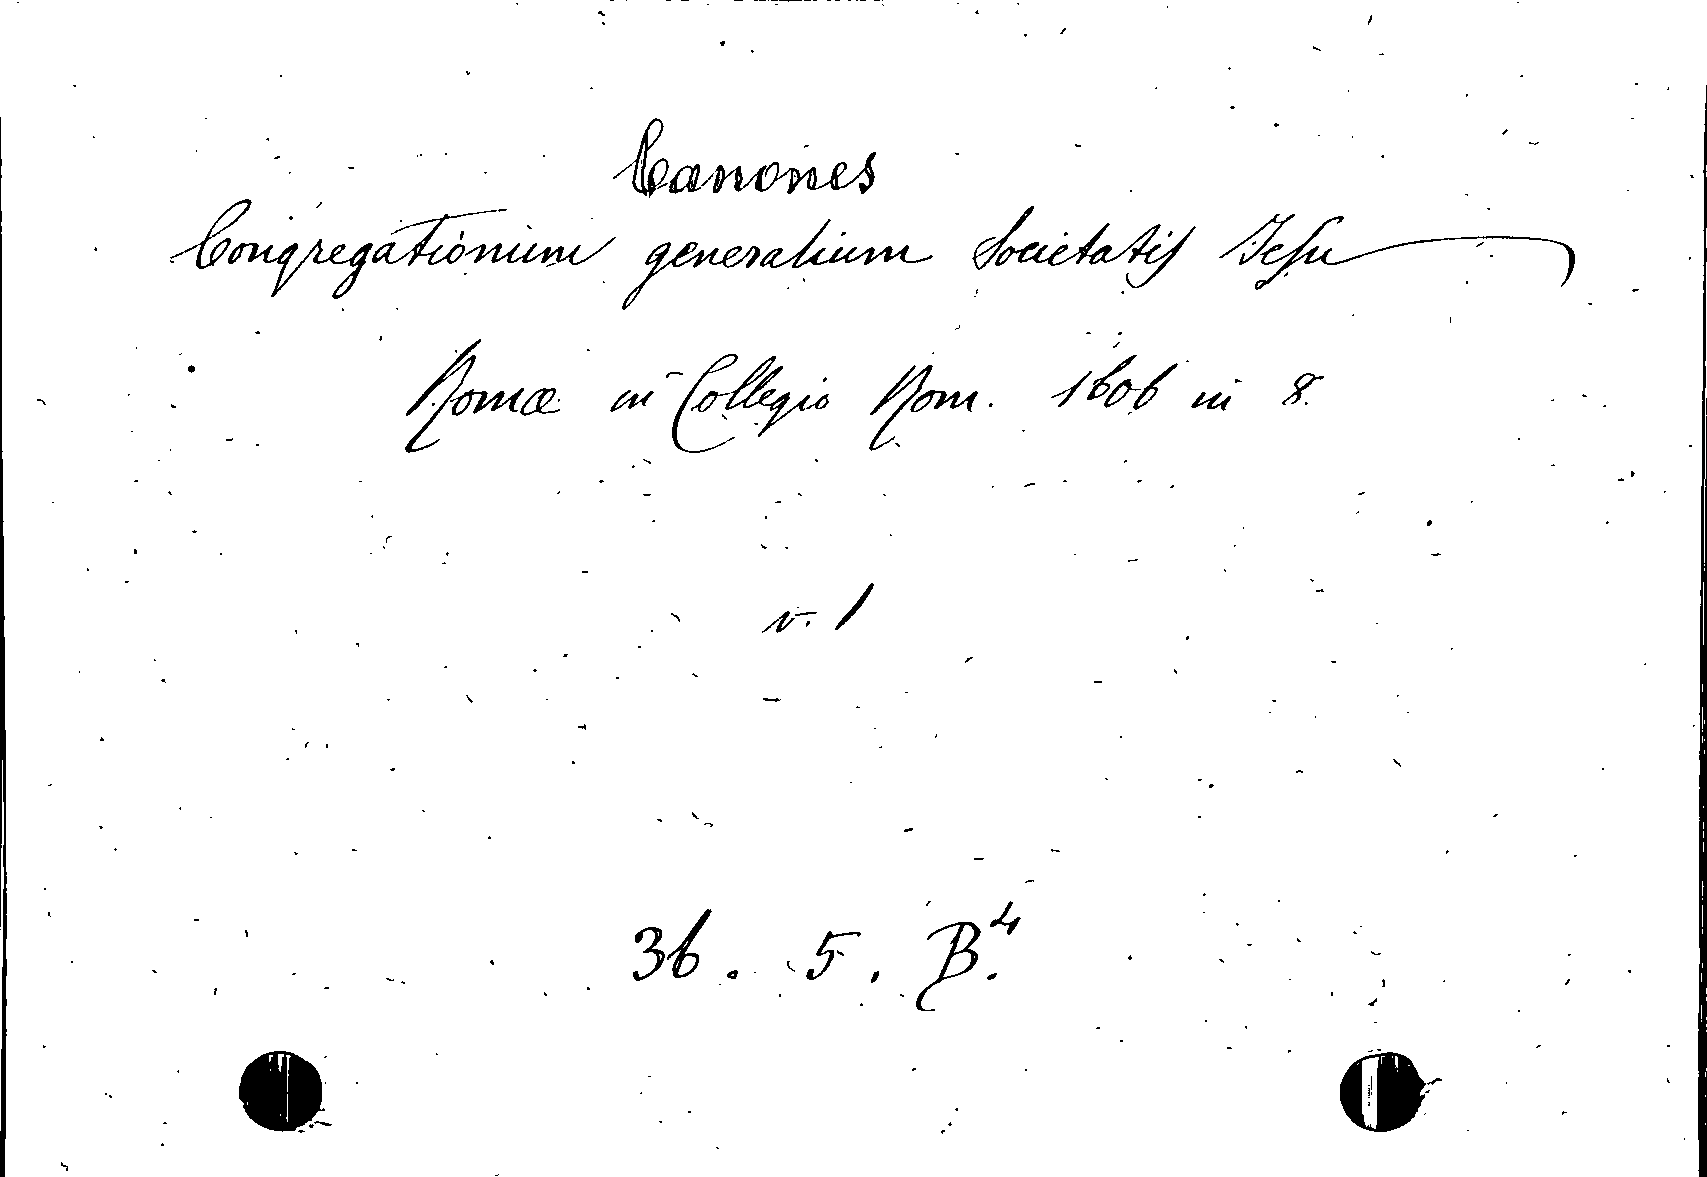 Canones
Congregationum generalium Societatis Iesu
Romæ in Collegio Rom. 1606 in 8.
v. 1
36. 5. B.4